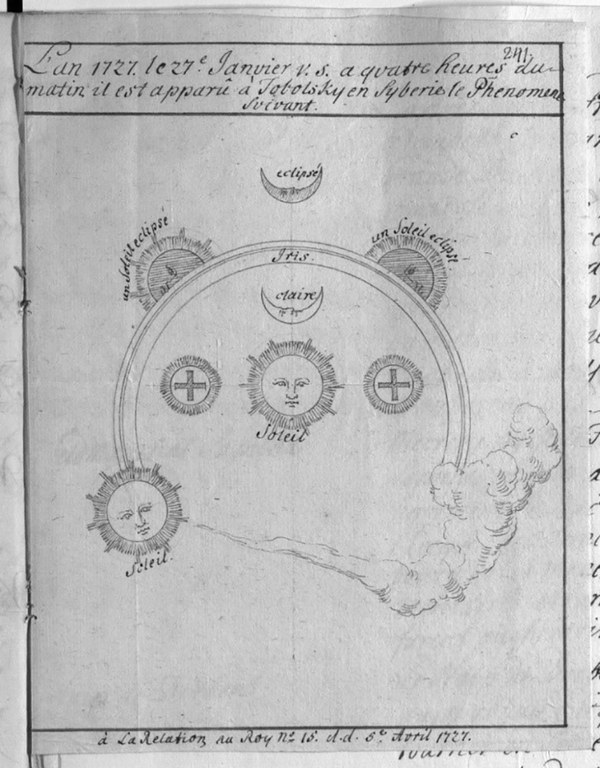 241.
L'an 1727. le 27.e Janvier v. s. a quatre heures du
matin il est apparû à Tobolsky en Syberie le Phenomene
Suivant.
eclipsé
un Soleil eclipsé
un Soleil eclipsé
Iris.
claire
Soleil
Soleil.
à La Relation au Roy No. 15. d.d. 5e Avril 1727.